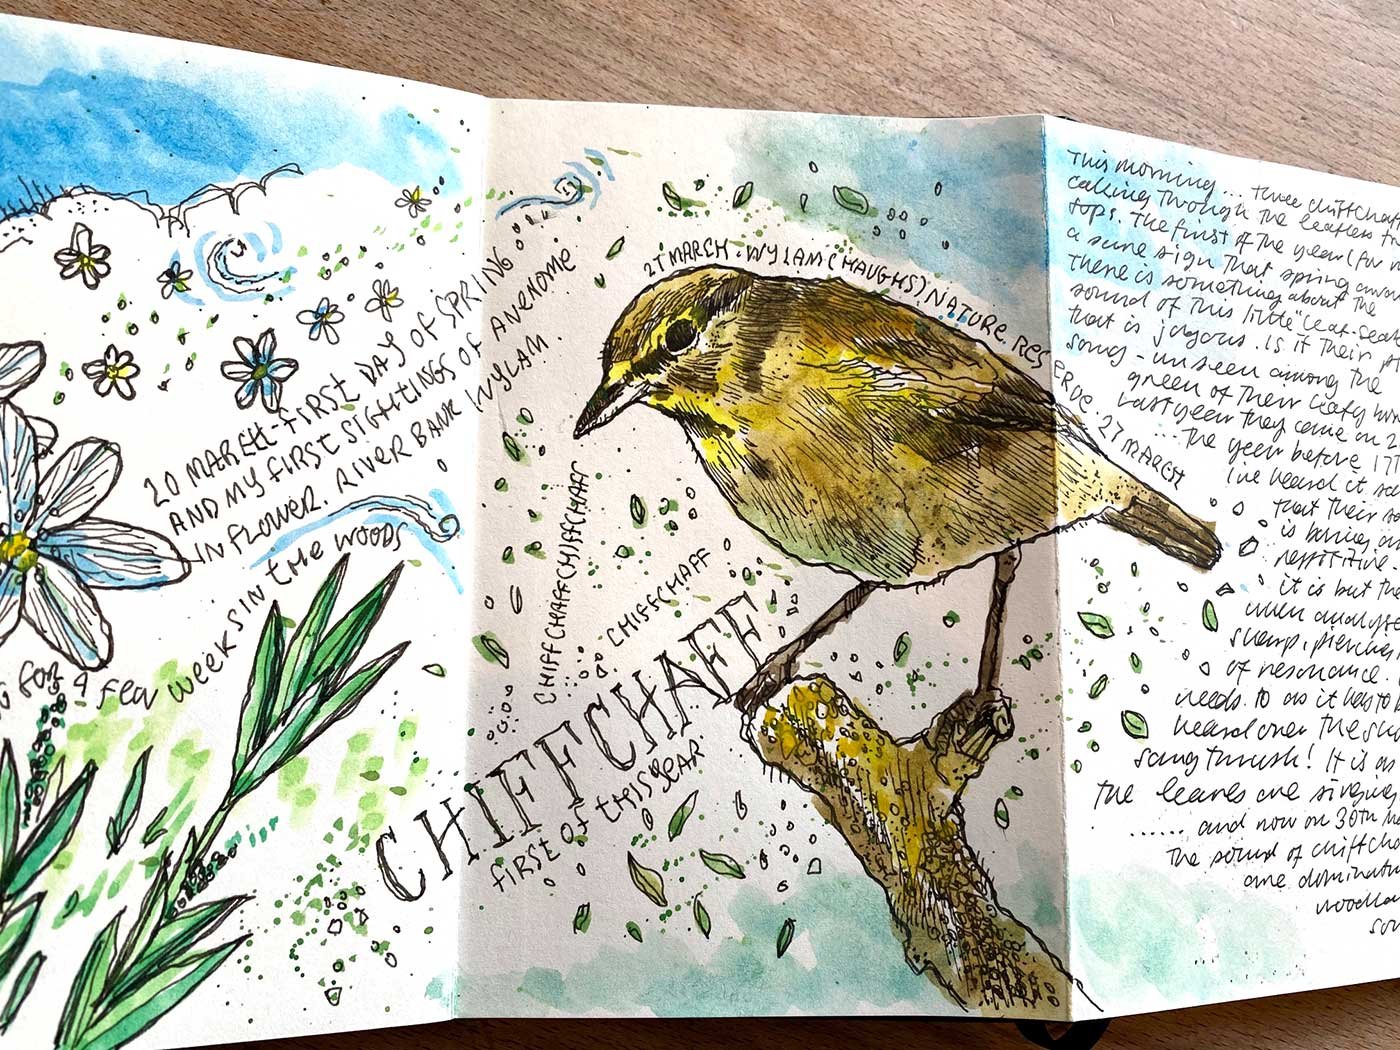 20 MARCH - FIRST DAY OF SPRING
AND MY FIRST SIGHTINGS OF ANEMOME
IN FLOWER. RIVER BANK WYLAM.
FOR A FEW WEEKS IN THE WOODS
27 MARCH. WYLAM (HAUGHS) NATURE RES
ERVE. 27 MARCH
CHIFFCHAFFCHIFFCHAFF
CHIFFCHAFF
CHIFFCHAFF
FIRST OF THIS YEAR
This morning... three chiffchaf
calling through the leafless tr
tops. The first of the year (for m
a sure sign that spring
there is something about the
sound of this little "leaf-
that is joyous. Is it their
song - unseen among the
green of their leafy
Last year they came on 2
... the year before 17T
I've heard it
that their
is boring
repetitive.
it is but the
when
sharp, piercing,
of resonance.
needs to as it has to b
heard over the
song thrush! It is as
the leaves are singing
...... and now on 30th
the sound of chiffcha
are dominat
woodla
so